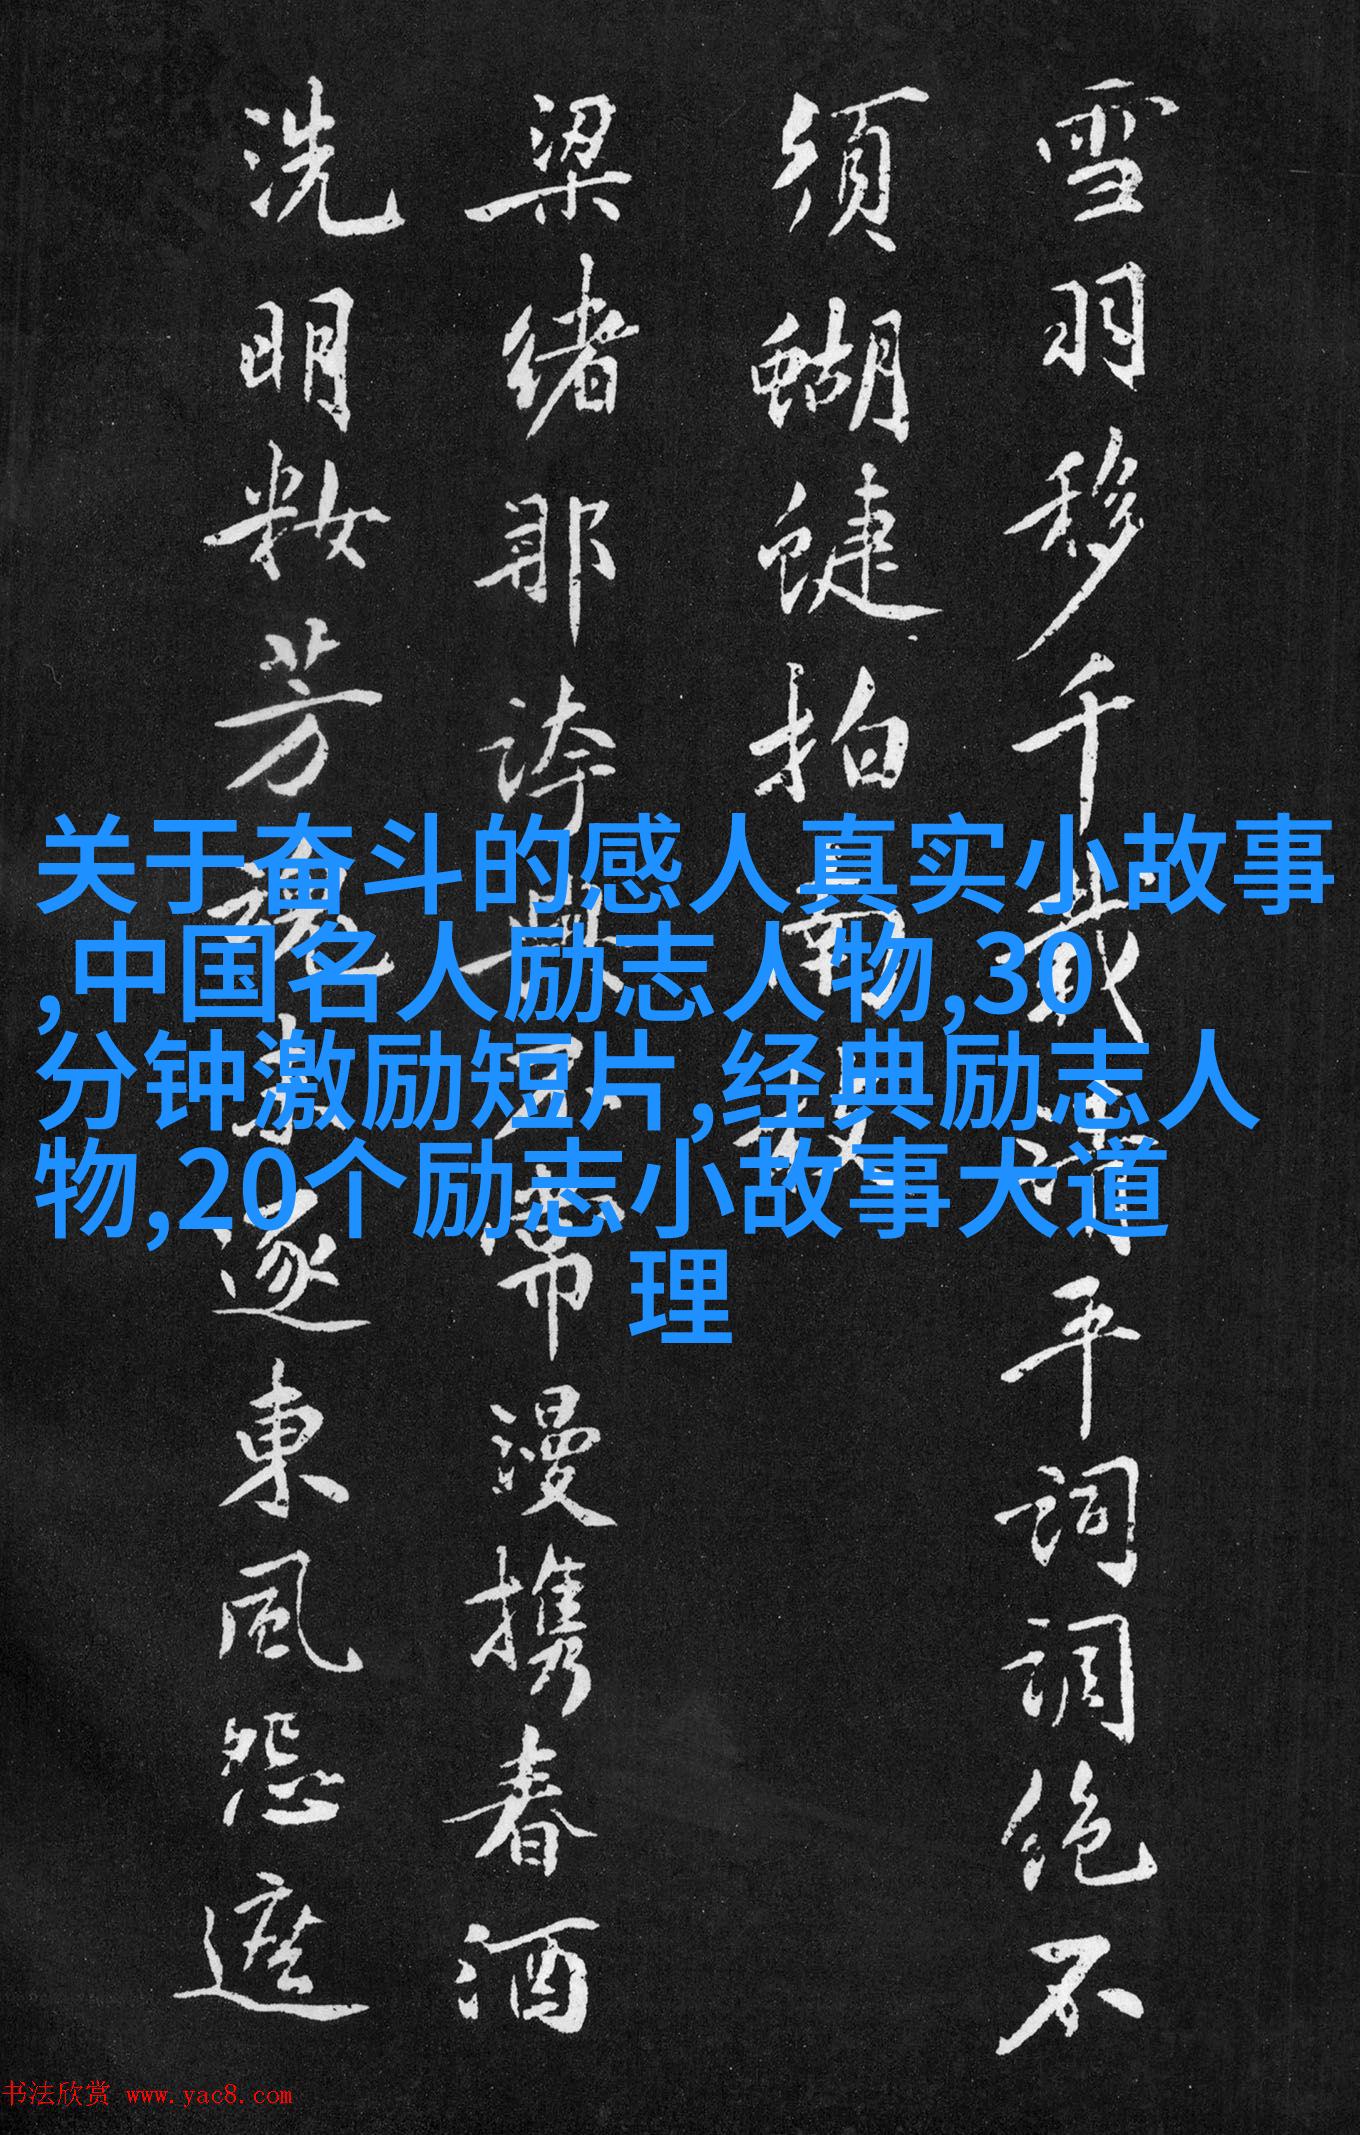 雪羽移千載清平詞調絶不
須蝴蜨拍南
梁緒那誇興不常漫携春酒
洗明籹芳魂逐東風怨遮
关于奋斗的感人真实小故事
,中国名人励志人物,30
分钟激励短片,经典励志人
物,20个励志小故事大道
理
书法欣赏 www.yac8.com